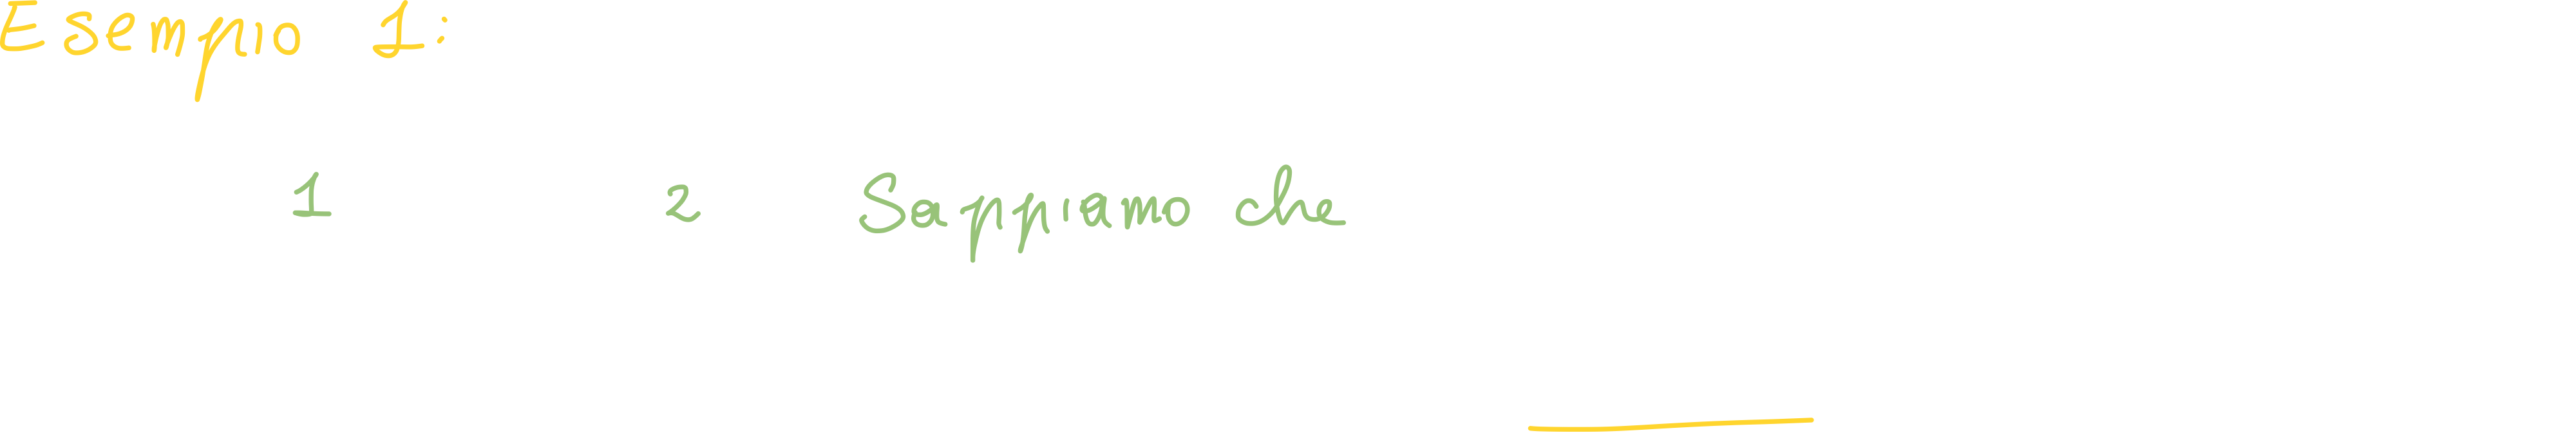 Esempio 1:
1 2 Sappiamo che